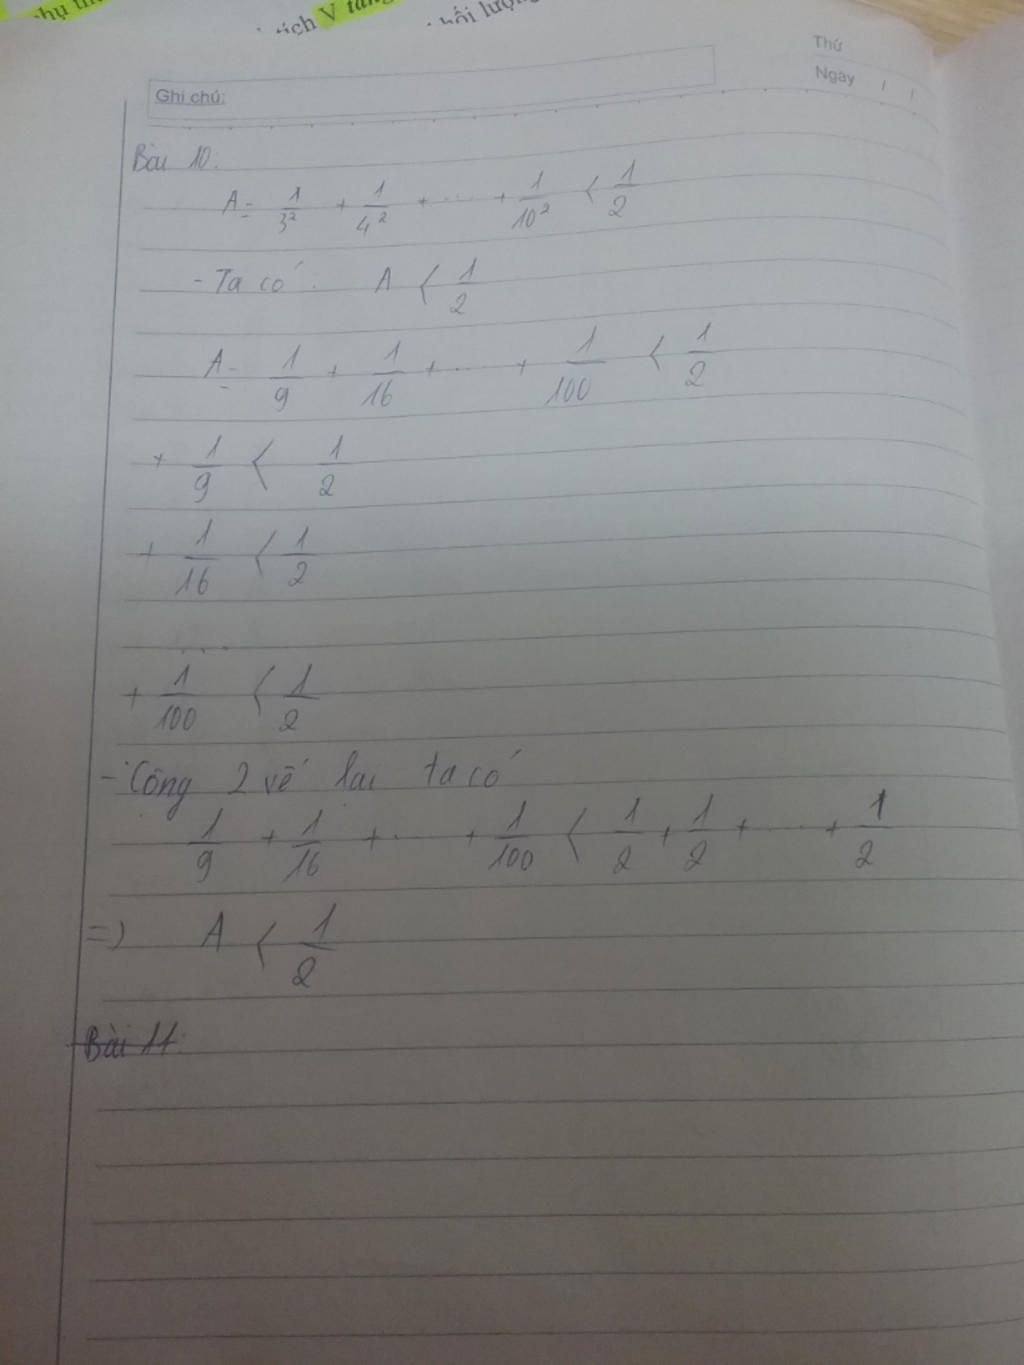 ích V tăng
khối lượng
Thứ
Ngày / /
Ghi chú:
Bài 10:
A = 1/3² + 1/4² + ... + 1/10² < 1/2
- Ta có: A < 1/2
A = 1/9 + 1/16 + ... + 1/100 < 1/2
+ 1/9 < 1/2
+ 1/16 < 1/2
....
+ 1/100 < 1/2
- Cộng 2 vế lại ta có
1/9 + 1/16 + ... + 1/100 < 1/2 + 1/2 + ... + 1/2
=) A < 1/2
Bài 11: